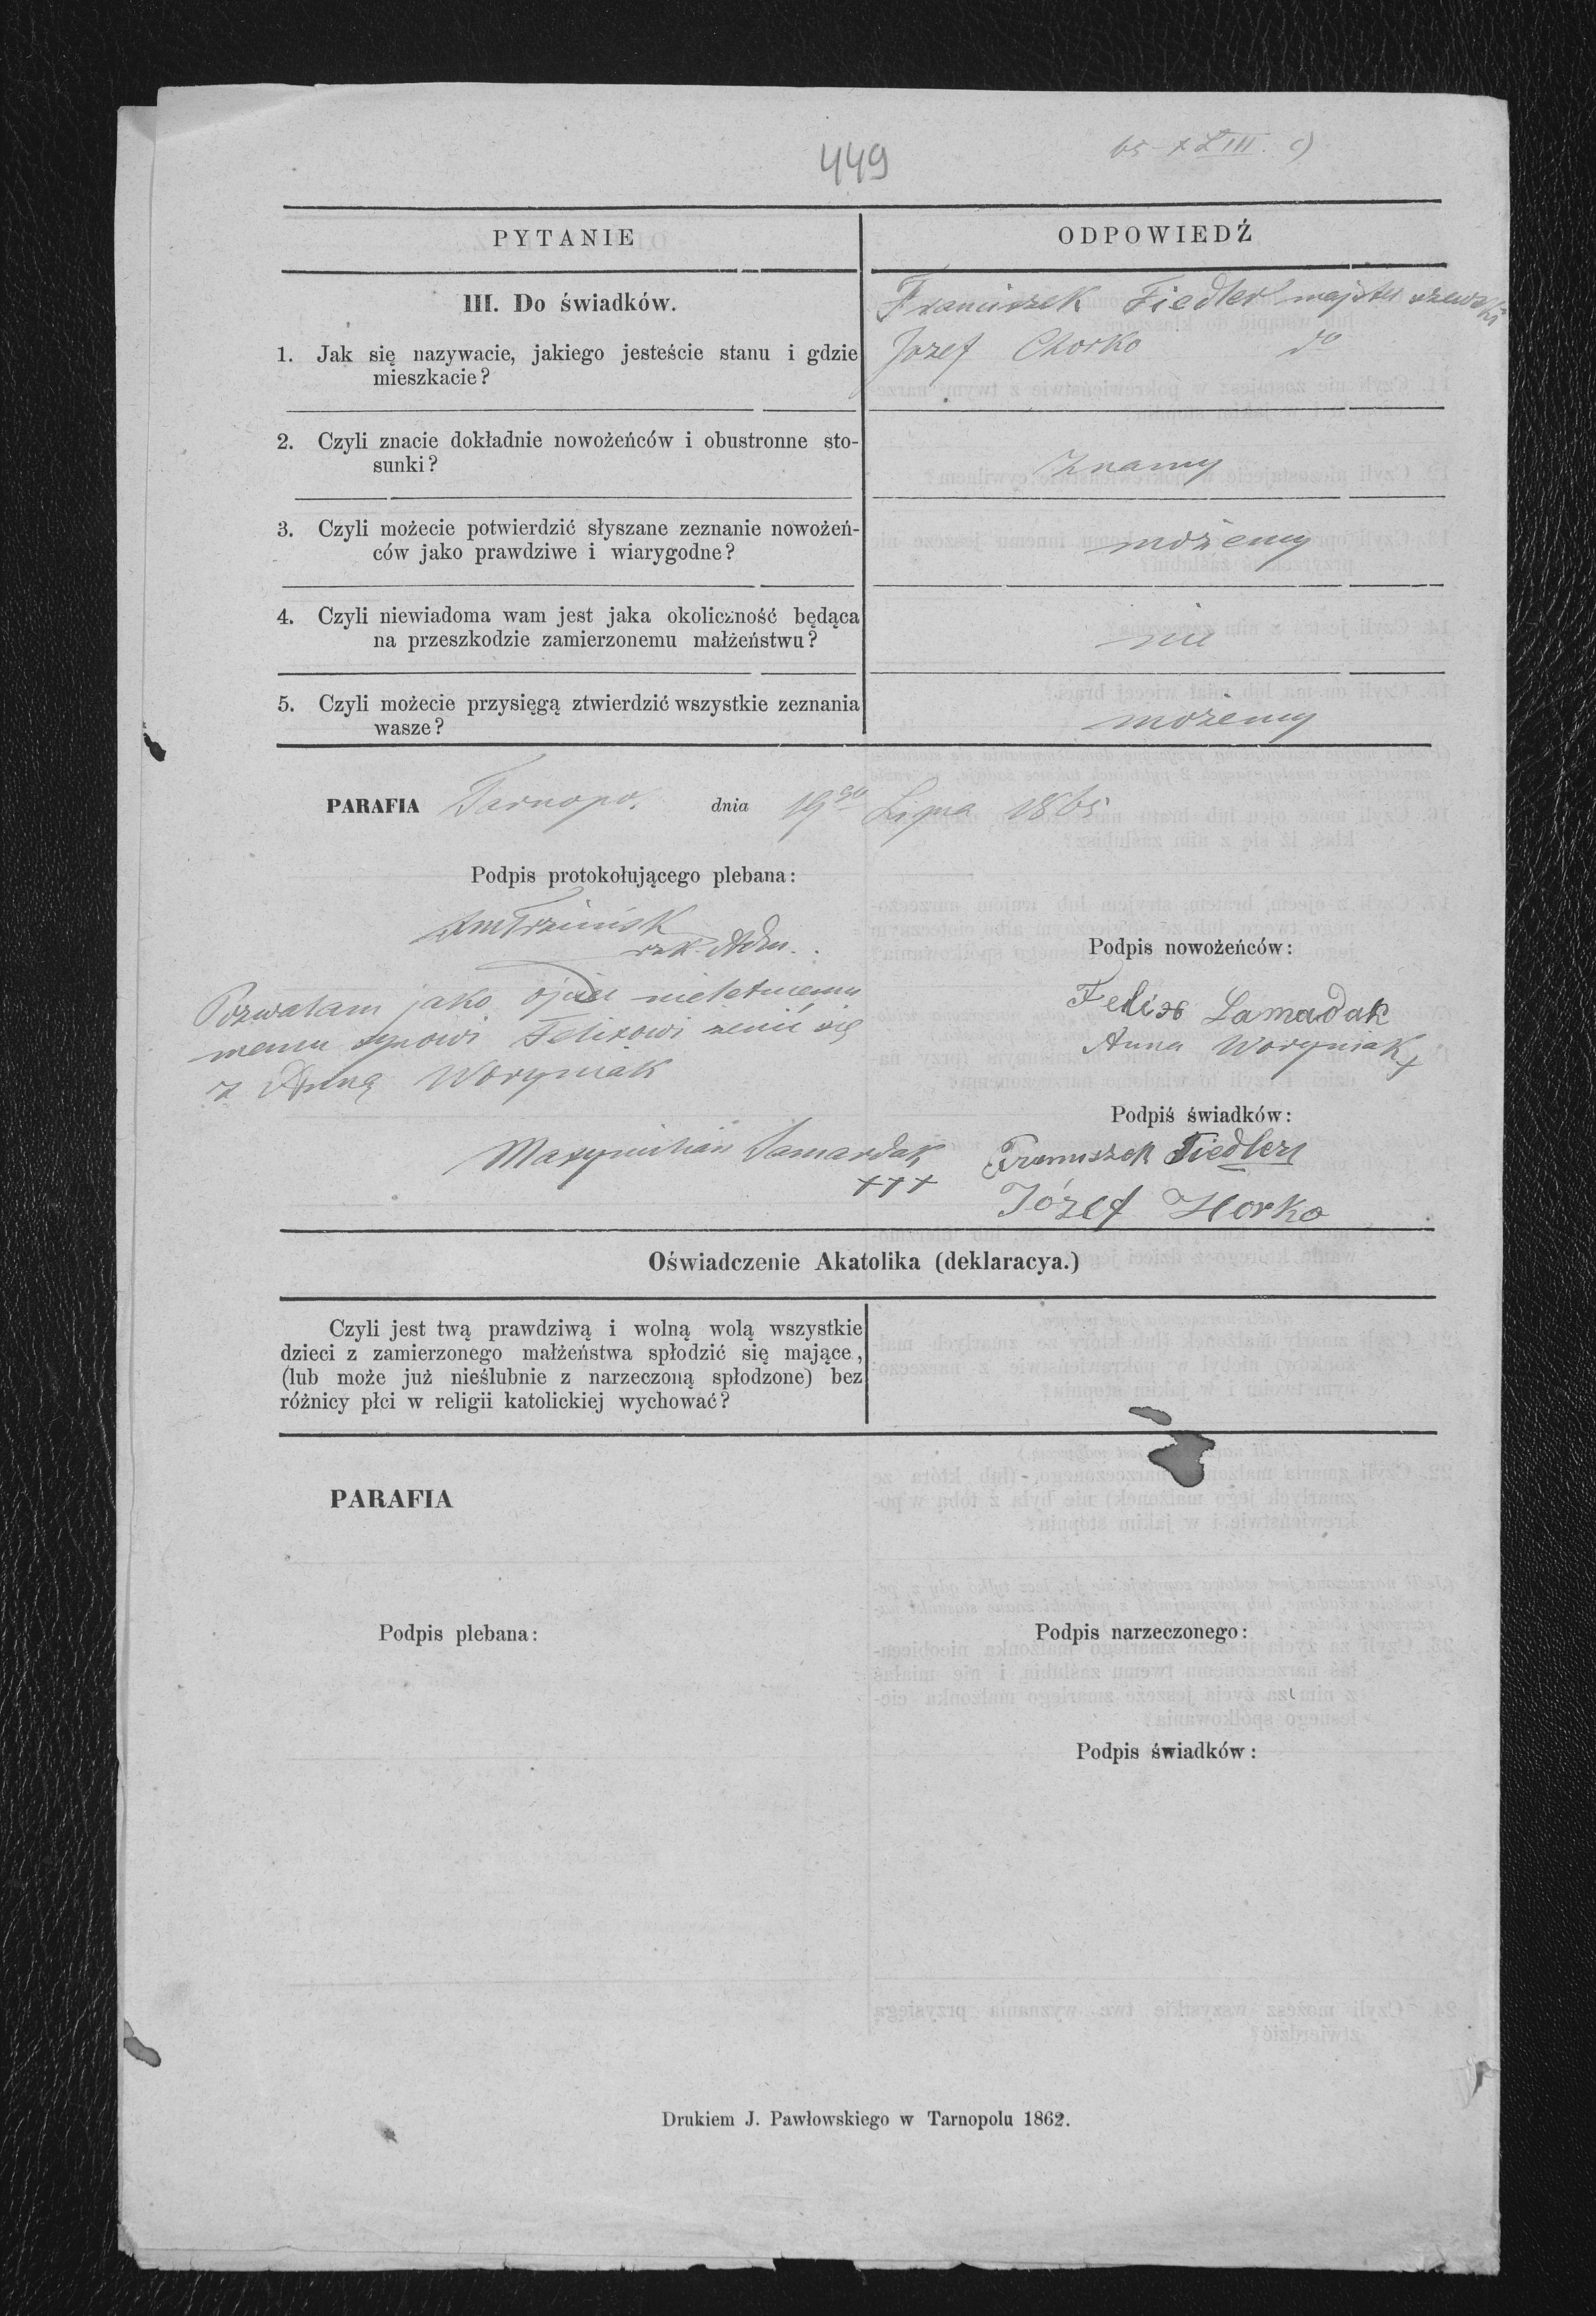 449
65-XLIII. c)
PYTANIE
ODPOWIEDŹ
III. Do świadków.
Franciszek Fiedler majster szewski
1. Jak się nazywacie, jakiego jesteście stanu i gdzie
mieszkacie?
Jozef Chorko do
2. Czyli znacie dokładnie nowożeńców i obustronne sto-
sunki?
Znamy
3. Czyli możecie potwierdzić słyszane zeznanie nowożeń-
ców jako prawdziwe i wiarygodne?
możemy
4. Czyli niewiadoma wam jest jaka okoliczność będąca
na przeszkodzie zamierzonemu małżeństwu?
nie
5. Czyli możecie przysięgą ztwierdzić wszystkie zeznania
wasze?
możemy
PARAFIA Tarnopo. dnia 19go Lipca 1865
Podpis protokołującego plebana:
Adm.
Pozwalam jako ojciec nieletniemu
memu synowi Felixowi żenić się
z Anną Woryniak
Maxymilian Samardak
+++
Podpis nowożeńców:
Felix Samadak
Anna Woryniak +
Podpiś świadków:
Franuszek Fiedler
Józef Horko
Oświadczenie Akatolika (deklaracya.)
Czyli jest twą prawdziwą i wolną wolą wszystkie
dzieci z zamierzonego małżeństwa spłodzić się mające,
(lub może już nieślubnie z narzeczoną spłodzone) bez
różnicy płci w religii katolickiej wychować?
PARAFIA
Podpis plebana:
Podpis narzeczonego:
Podpis świadków:
Drukiem J. Pawłowskiego w Tarnopolu 1862.